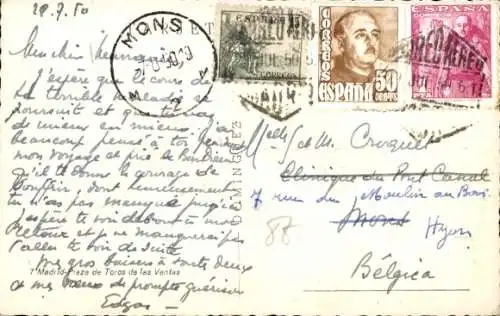 29.7.50
Mon chien
J'espère que le cours de
la terrible maladie se
poursuit et que tu vas
de mieux en mieux. J'ai
beaucoup pensé à toi pendant
mon voyage et prié le
qu'il te donne le courage de
souffrir, dont heureusement
tu n'as pas manqué jusqu'ici
J'espère te voir debout à mon
retour et je ne manquerai pas
d'aller te voir de suite.
Mes gros baisers à toutes deux
et mes vœux de prompte guérison
Edgar
7 Madrid-Plaza de Toros de las Ventas
MONS
CORREOS
ESPAÑA
50
CENTIMOS
ESPAÑA
CORREO AEREO
DOMINGUEZ
Mells et M. Croquet
Clinique du Pont Canal
7 rue du Moulin au Bois
Mons
Hyon
Belgica